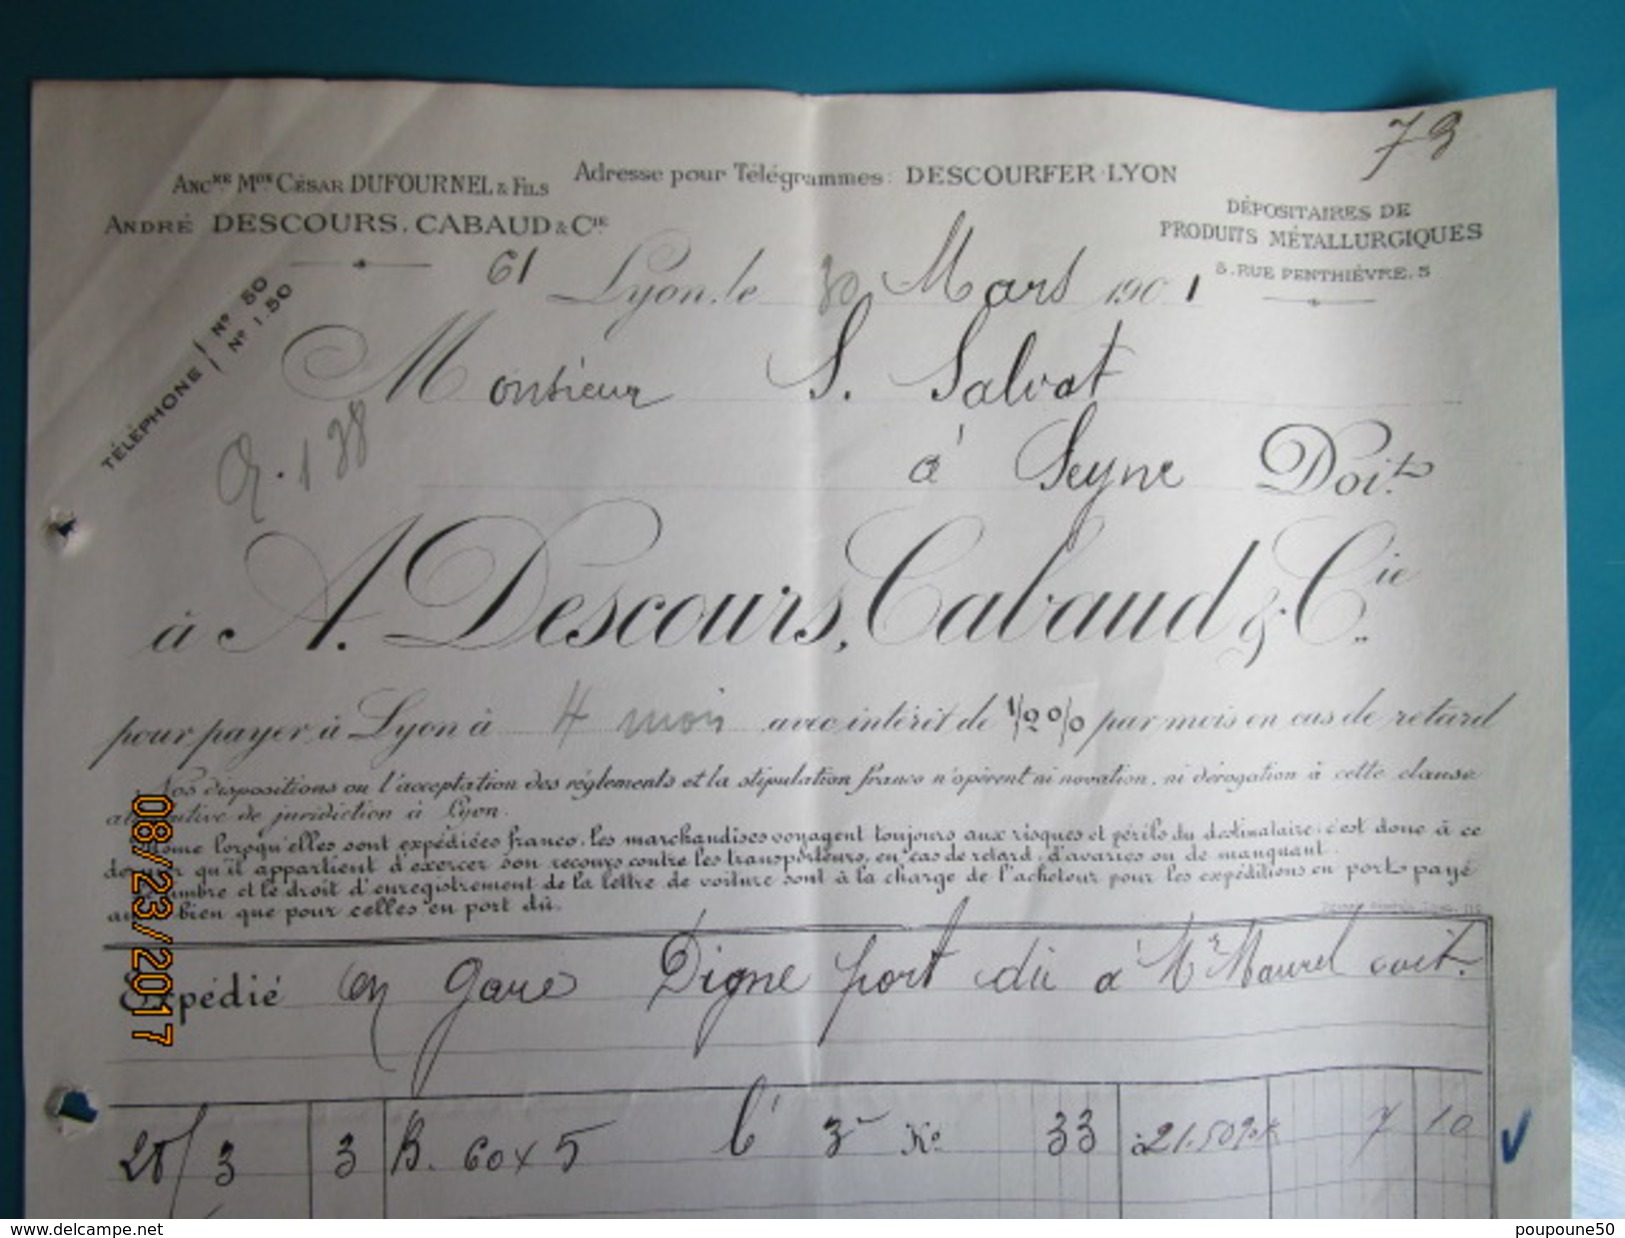 73
ANCNE MON CÉSAR DUFOURNEL & FILS
Adresse pour Télégrammes: DESCOURFER-LYON
ANDRÉ DESCOURS, CABAUD & CIE
DÉPOSITAIRES DE
PRODUITS MÉTALLURGIQUES
5, RUE PENTHIÈVRE, 5
TÉLÉPHONE
Nº 50
Nº 1.50
61
Lyon, le 30 Mars 1901
Monsieur S. Salvat
138
à Seyne Doit
à A. Descours, Cabaud & Cie
pour payer à Lyon à 4 mois avec intérêt de 1/2 0/0 par mois en cas de retard
Nos dispositions ou l'acceptation des règlements et la stipulation franco n'opèrent ni novation, ni dérogation à cette clause
de juridiction à Lyon.
lorsqu'elles sont expédiées franco, les marchandises voyagent toujours aux risques et périls du destinataire; c'est donc à ce
qu'il appartient d'exercer son recours contre les transporteurs, en cas de retard, d'avaries ou de manquant.
et le droit d'enregistrement de la lettre de voiture sont à la charge de l'acheteur pour les expéditions en port payé
bien que pour celles en port dû.
Expédié en gare Digne port dû à Mr Maurel
28/3 3 B. 60 x 5 Ko 33 à 21.50 % k 7 10
08/23/2017
www.delcampe.net
poupoune50